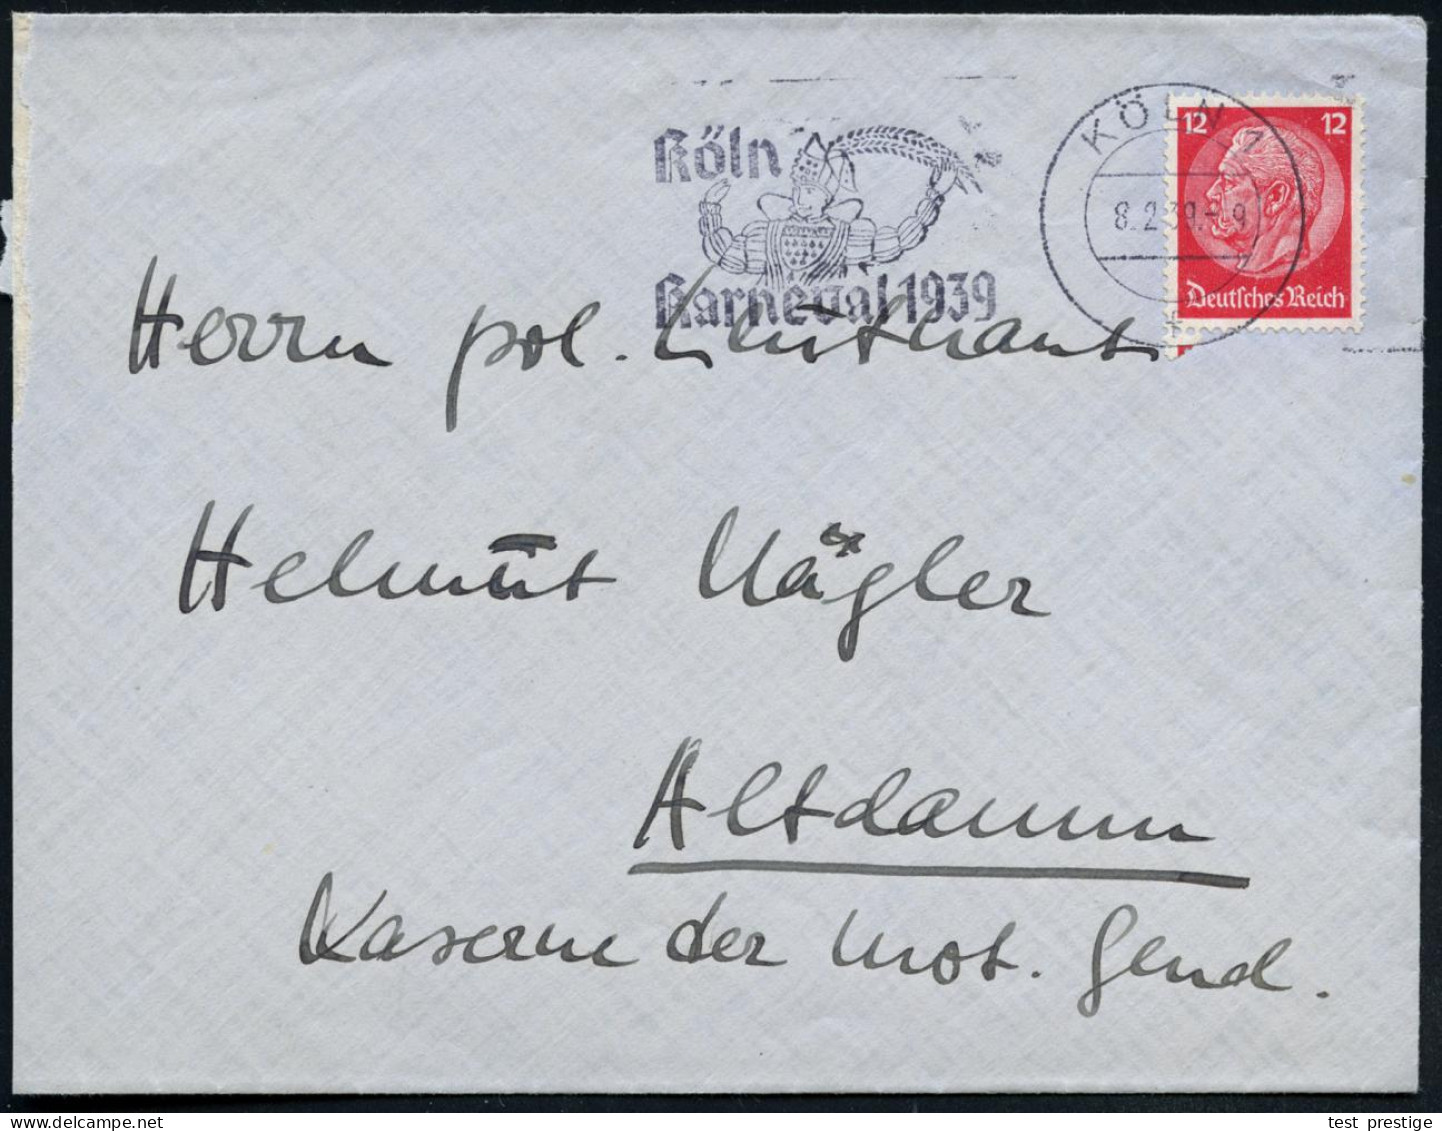 Köln
Karneval 1939
KÖLN 1
8.2.39.-9
12 12
Deutsches Reich
Herrn pol. Leutnant
Helmut Nägler
Altdamm
Kaserne der mot. Gend.
test_prestige